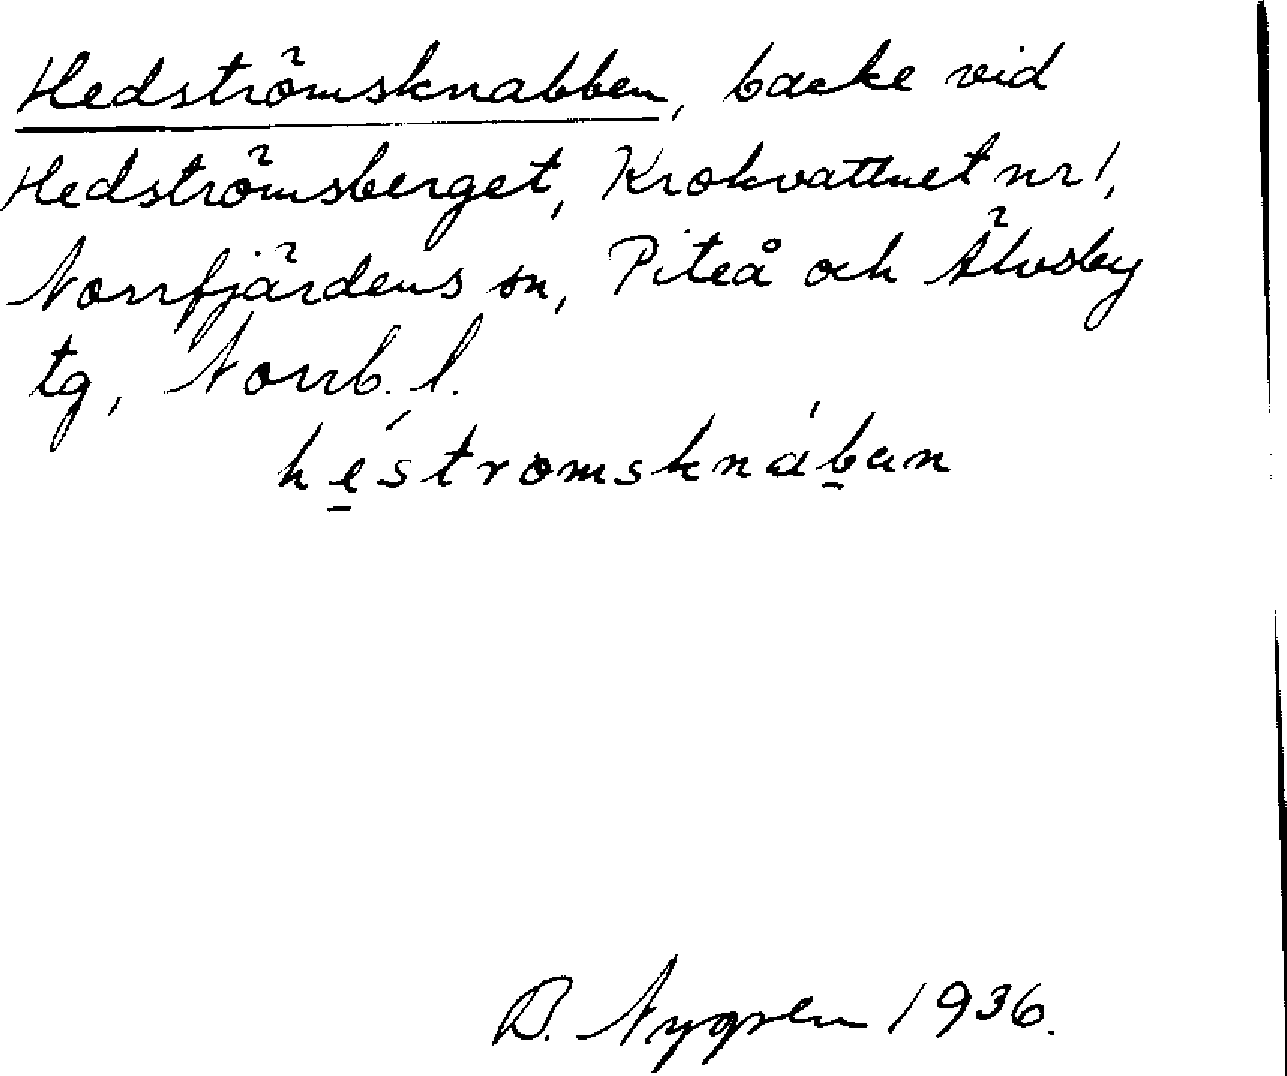 Hedströmsknabben, backe vid
Hedströmsberget, Krokvattnet nr 1,
Norrfjärdens sn, Piteå och Älvsby
tg, Norrb. l.
hé̱stromsknáḇan
B. Nygren 1936.